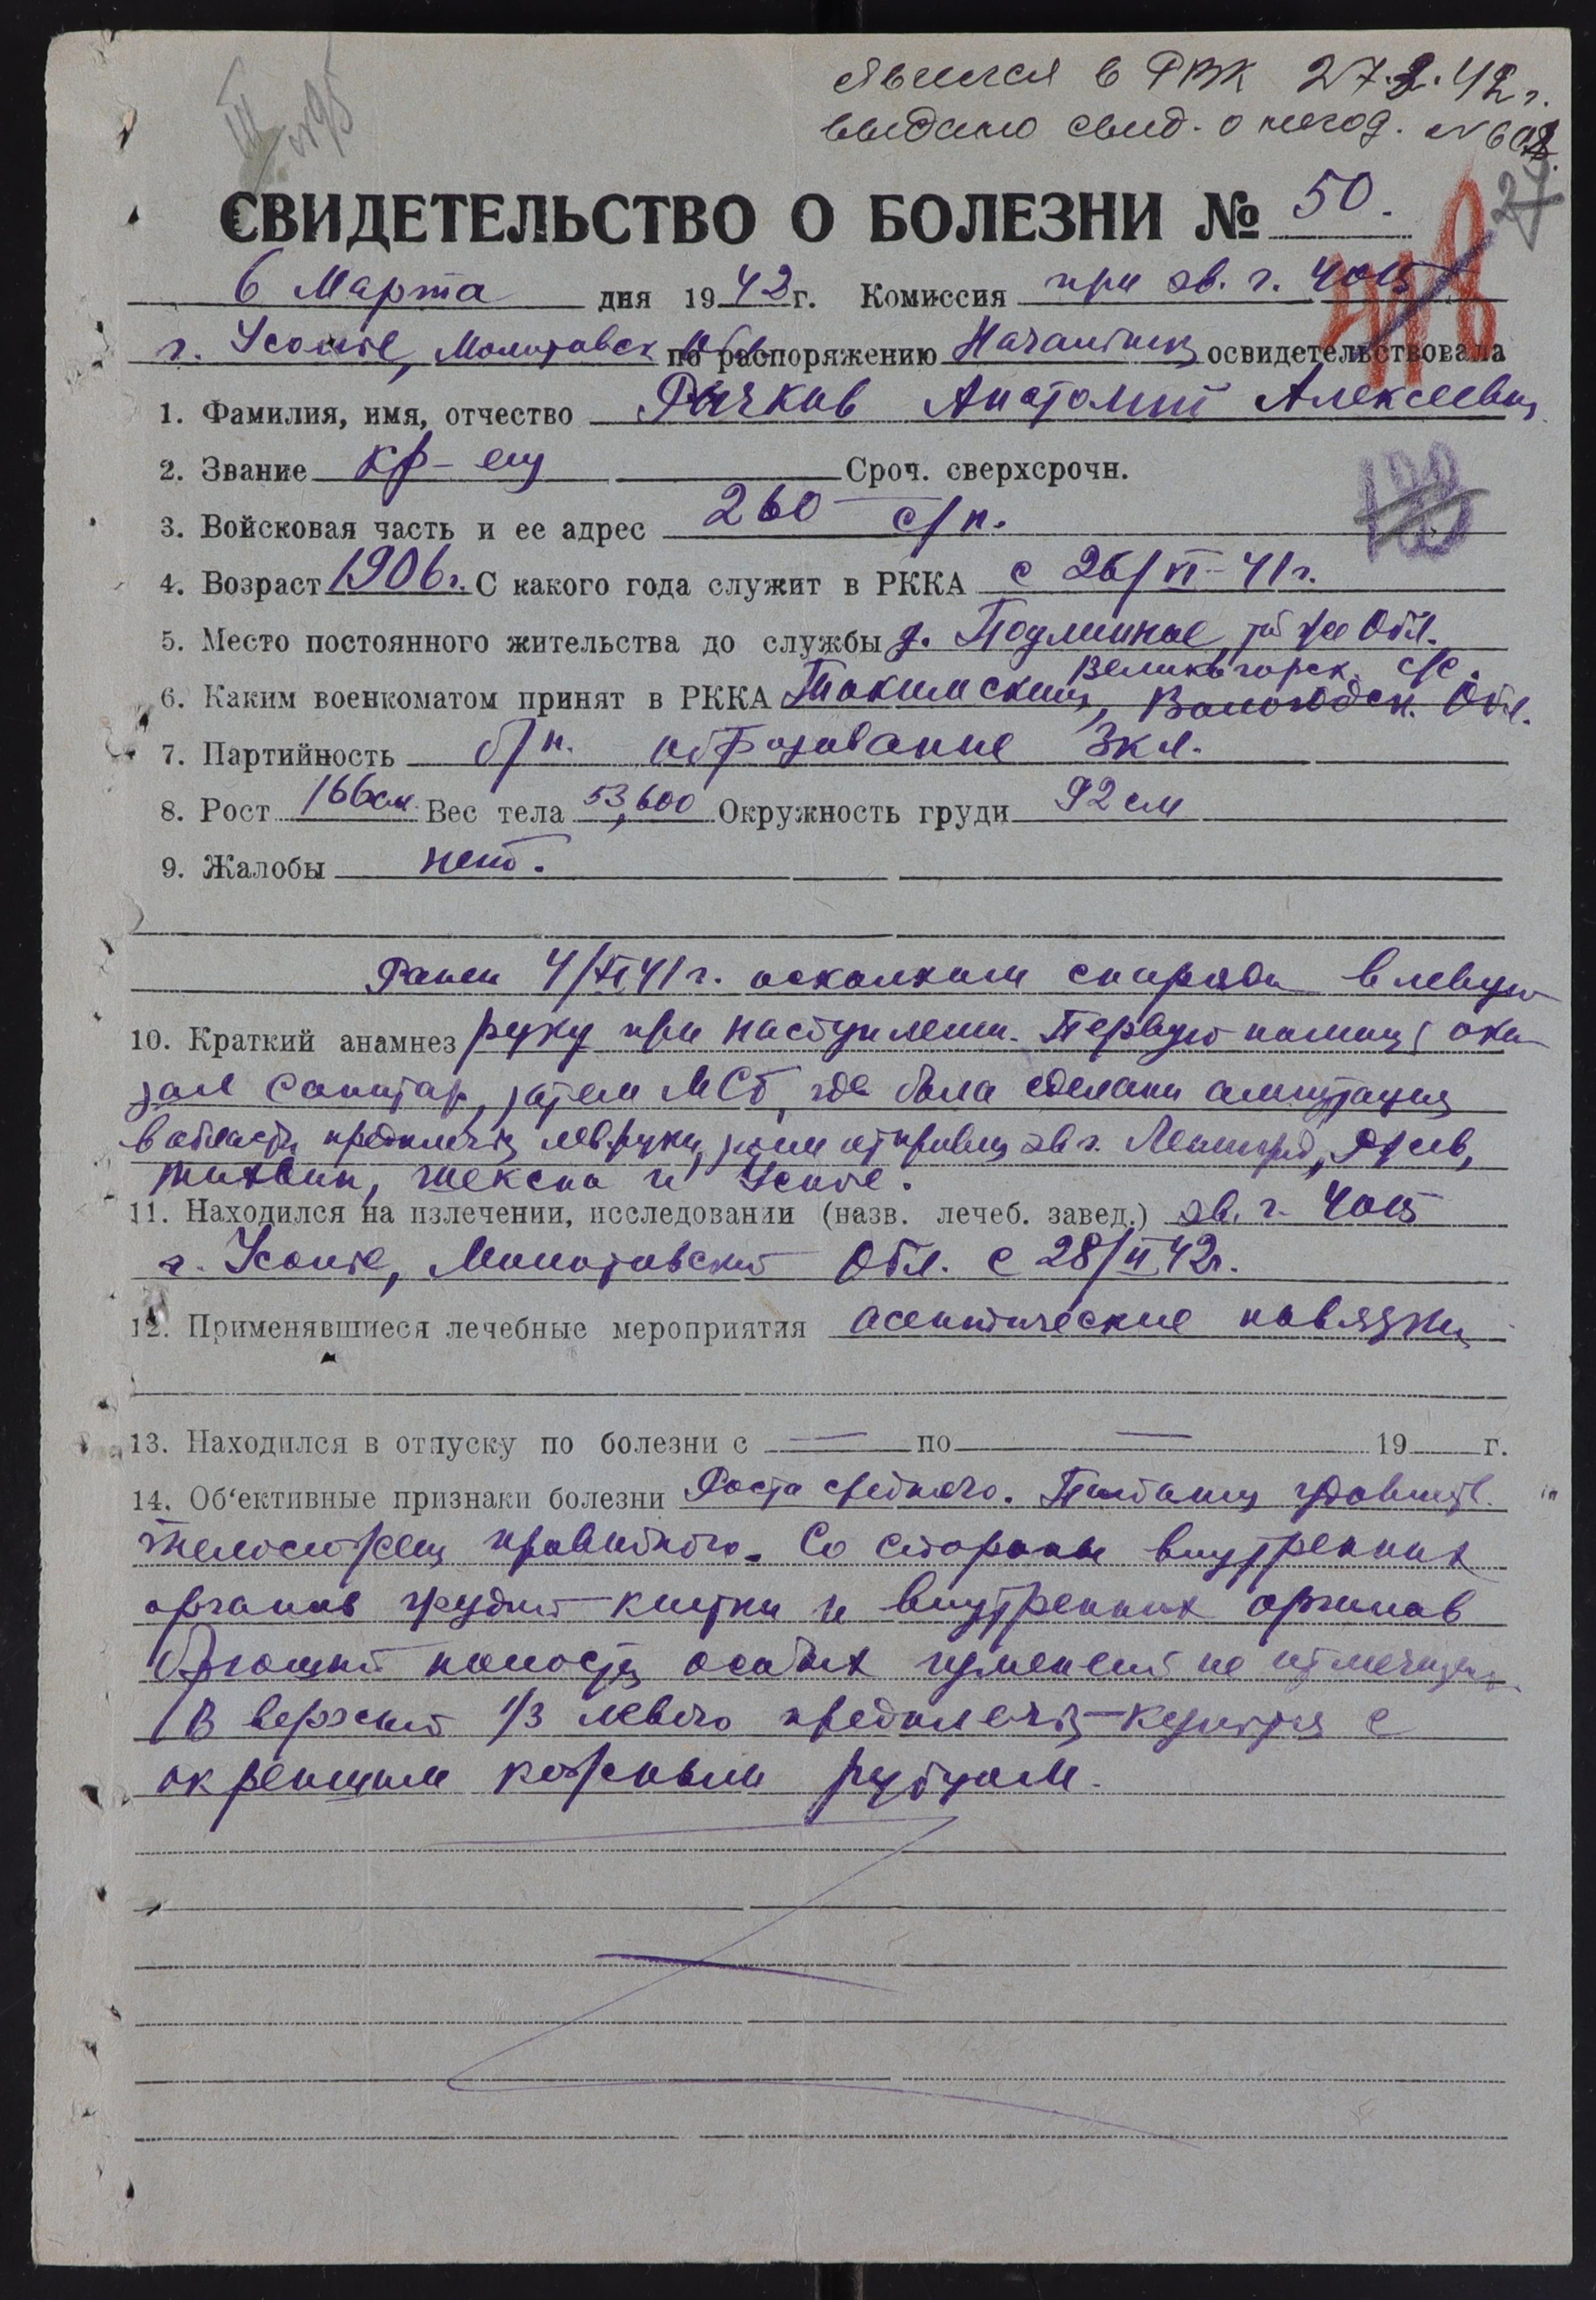 явился в РВК 27.3.42г.
выдано свид. о негод. №
27
СВИДЕТЕЛЬСТВО О БОЛЕЗНИ № 50.
6 Марта дня 1942г. Комиссия при эв. г. 4015
г. Усолье, Молотовск Обл. по распоряжению Начальник освидетельствовала
1. Фамилия, имя, отчество Рычков Анатолий Алексеевич
2. Звание кр-ец Сроч. сверхсрочн.
3. Войсковая часть и ее адрес 260 с/п.
4. Возраст 1906г. С какого года служит в РККА с 26/VI-41г.
5. Место постоянного жительства до службы д. той же Обл.
Великогорск. с/с.
6. Каким военкоматом принят в РККА Вологодск. Обл.
7. Партийность б/п. образование 3кл.
8. Рост 166см. Вес тела 53,600 Окружность груди 92 см
9. Жалобы нет.
Ранен 4/XI 41г. осколком снаряда в левую
10. Краткий анамнез руку при наступлении. Первую помощь ока-
зал санитар, затем МСБ, где была сделана ампутация
в области предплечья лев. руки, затем отправлен эв г. Ленинград,
Тихвин, Шексна и Усолье.
11. Находился на излечении, исследовании (назв. лечеб. завед.) эв. г. 4015
г. Усолье, Молотовской Обл. с 28/II 42г.
12. Применявшиеся лечебные мероприятия асептические повязки
13. Находился в отпуску по болезни с — по — 19 г.
14. Об‘ективные признаки болезни Роста среднего. Питания удовлетв.
Телосложен правильного. Со стороны внутренних
органов грудной клетки и внутренних органов
брюшной полости особых изменений не отмечается.
В верхней 1/3 левого предплечья культя с
окрепшим кожным рубцом.